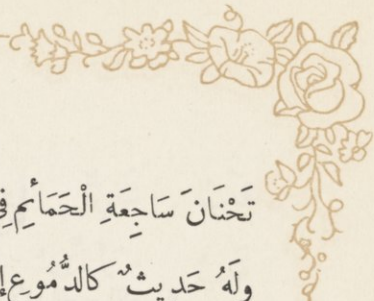 تَحْنَانَ سَاجِعَةِ الْحَمَائِمِ فِي
ولَهُ حَدِيثٌ كالدُّمُوعِ إ